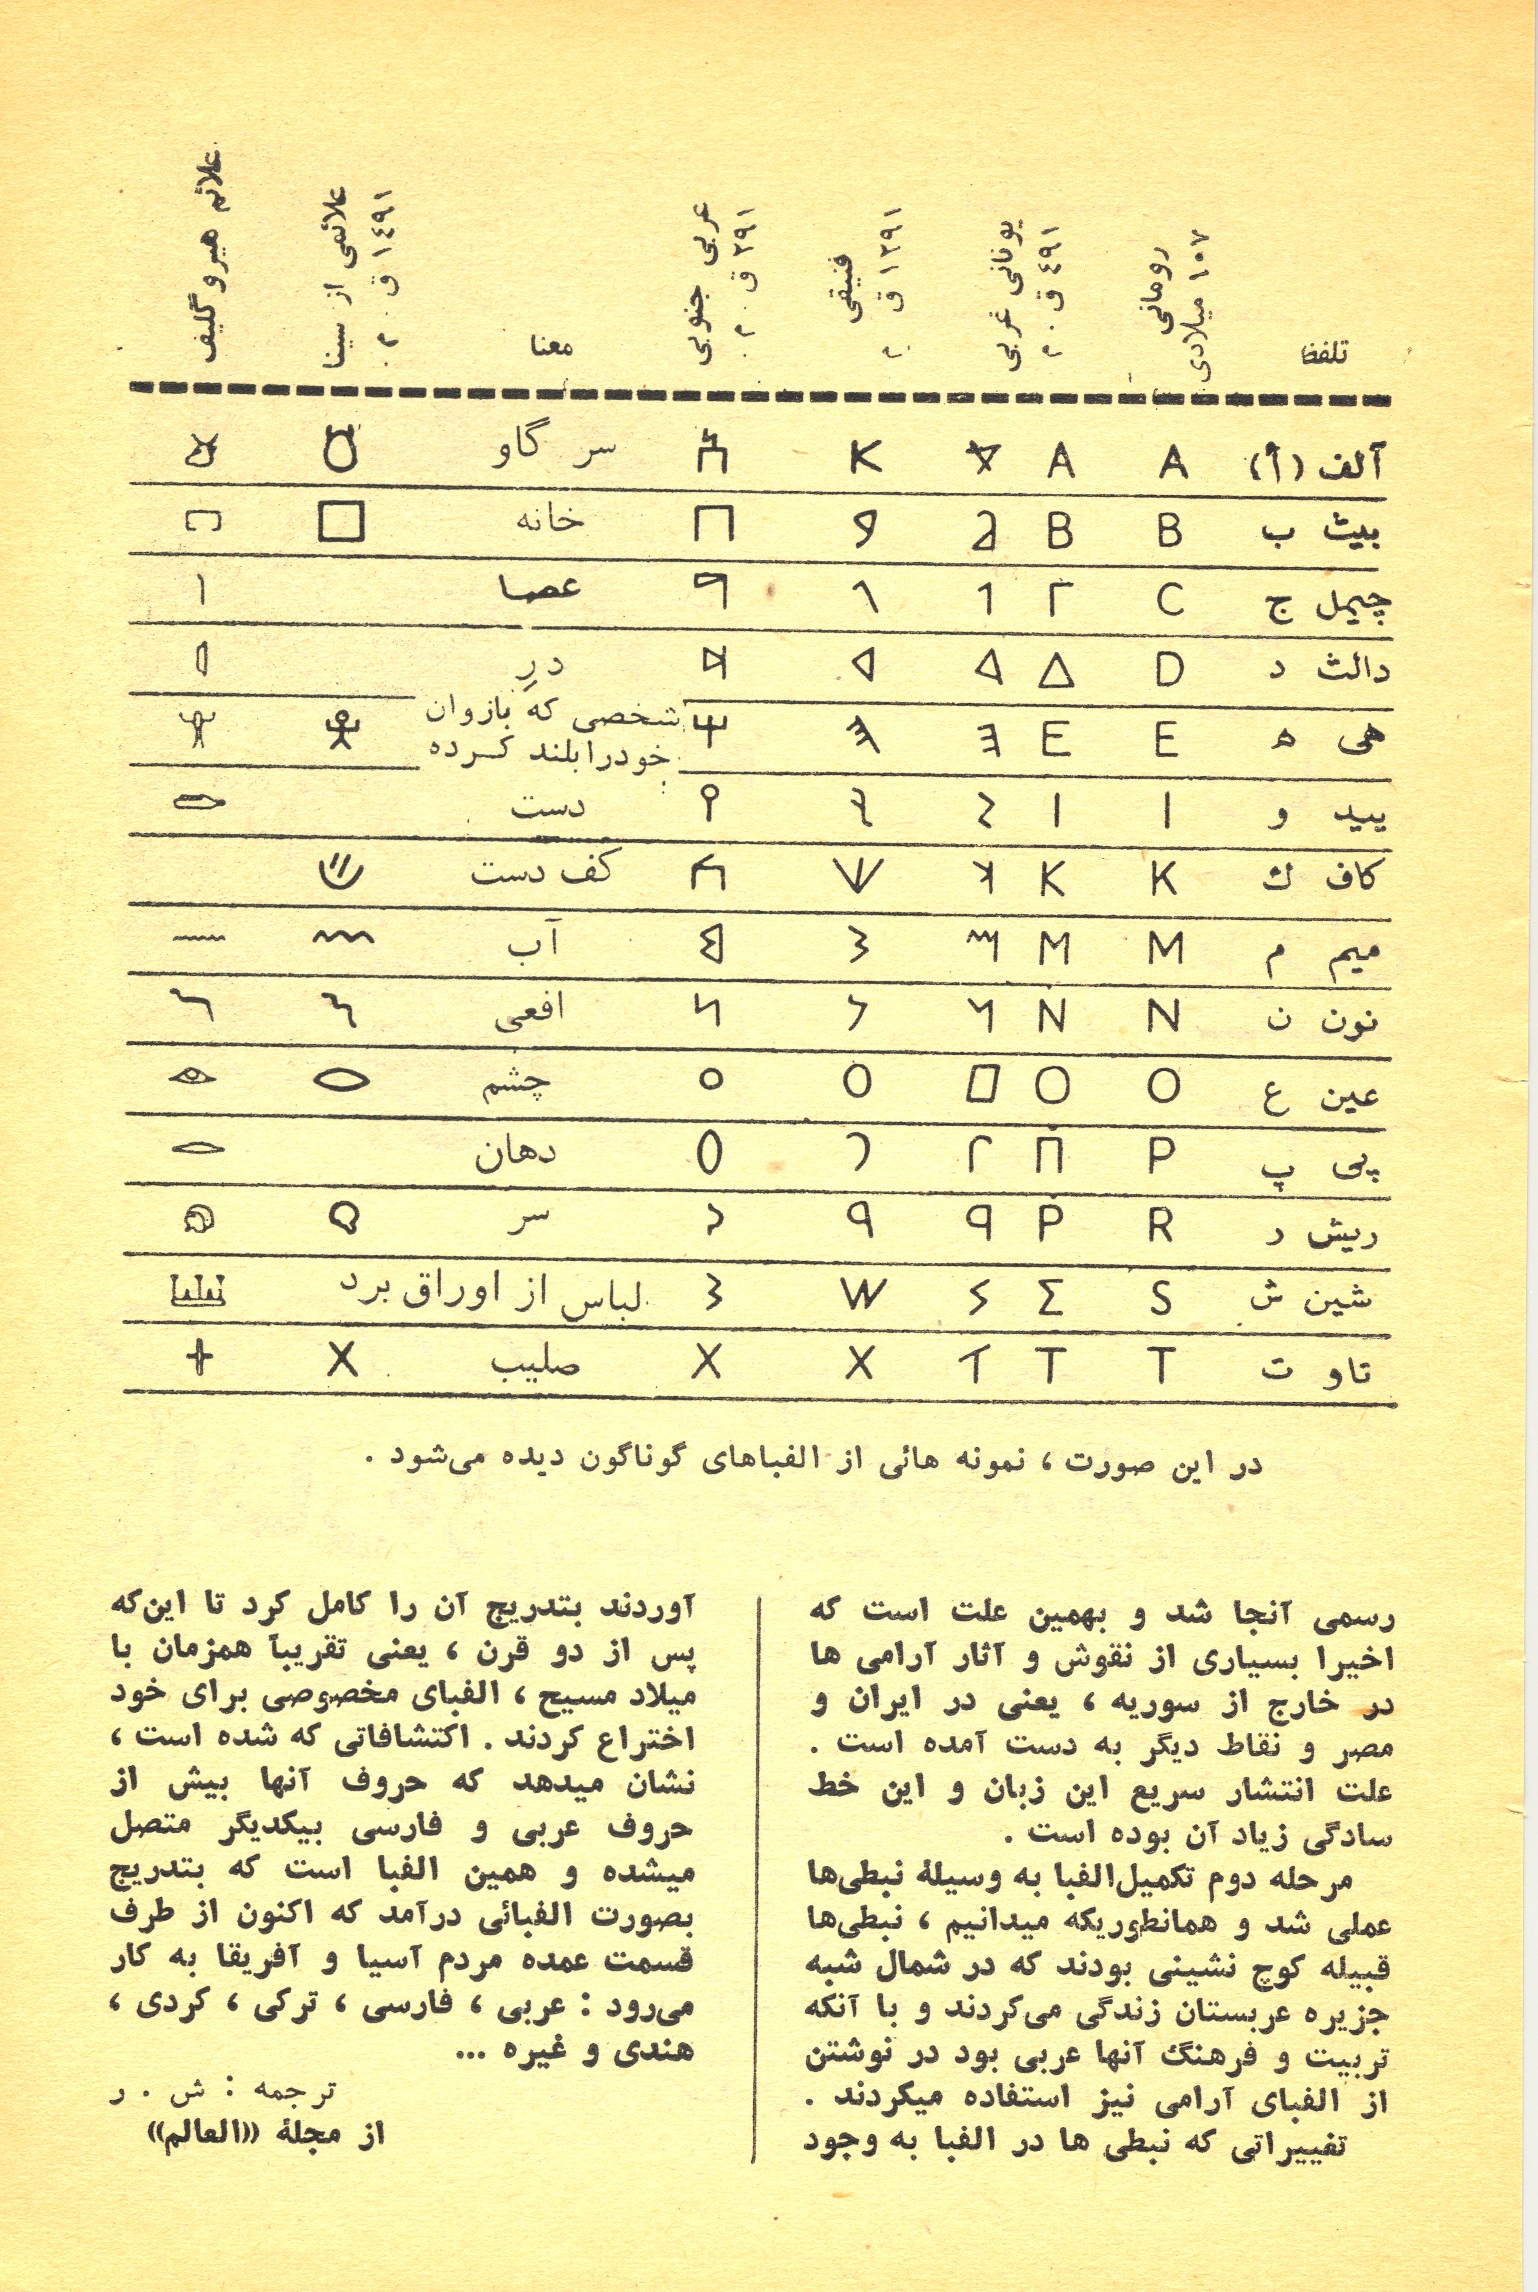 تلفظ
رومانی
۱۰۷ میلادی
یونانی غربی
٤۹۱ ق . م
فنیقی
۱۲۹۱ ق . م
عربی جنوبی
۲۹۱ ق . م .
معنا
علائمی از سینا
۱٤۹۱ ق . م .
علائم هیروگلیف
آلف (أ) A A سر گاو
بیث ب B B خانه
چیمل ج C Γ عصا
دالث د D Δ در
هی ه E E شخصی که بازوان
خودرا بلند کرده
یید و I I دست
کاف ك K K کف دست
میم م M M آب
نون ن N N افعی
عین ع O O چشم
پی پ P Π دهان
ریش ر R P سر
شین ش S Σ لباس از اوراق برد
تاو ت T T صلیب
در این صورت ، نمونه هائی از الفباهای گوناگون دیده می‌شود .
رسمی آنجا شد و بهمین علت است که
اخیرا بسیاری از نقوش و آثار آرامی ها
در خارج از سوریه ، یعنی در ایران و
مصر و نقاط دیگر به دست آمده است .
علت انتشار سریع این زبان و این خط
سادگی زیاد آن بوده است .
مرحله دوم تکمیل‌الفبا به وسیلهٔ نبطی‌ها
عملی شد و همانطوریکه میدانیم ، نبطی‌ها
قبیله کوچ نشینی بودند که در شمال شبه
جزیره عربستان زندگی می‌کردند و با آنکه
تربیت و فرهنگ آنها عربی بود در نوشتن
از الفبای آرامی نیز استفاده میکردند .
تغییراتی که نبطی ها در الفبا به وجود
آوردند بتدریج آن را کامل کرد تا این‌که
پس از دو قرن ، یعنی تقریباً همزمان با
میلاد مسیح ، الفبای مخصوصی برای خود
اختراع کردند . اکتشافاتی که شده است ،
نشان میدهد که حروف آنها بیش از
حروف عربی و فارسی بیکدیگر متصل
میشده و همین الفبا است که بتدریج
بصورت الفبائی درآمد که اکنون از طرف
قسمت عمده مردم آسیا و آفریقا به کار
می‌رود : عربی ، فارسی ، ترکی ، کردی ،
هندی و غیره ...
ترجمه : ش . ر
از مجلهٔ «العالم»